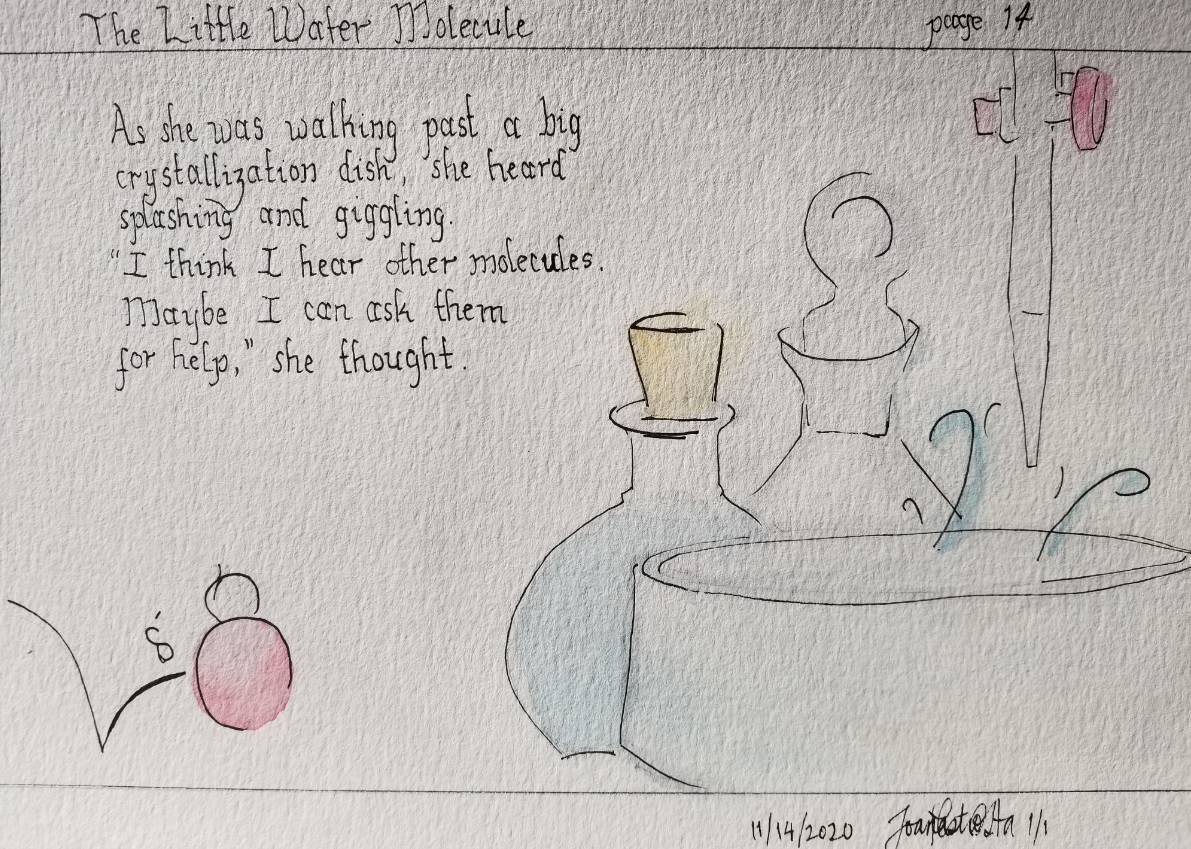 The Little Water Molecule
page 14
As she was walking past a big
crystallization dish, she heard
splashing and giggling.
"I think I hear other molecules.
Maybe I can ask them
for help," she thought.
11/14/2020 1/1